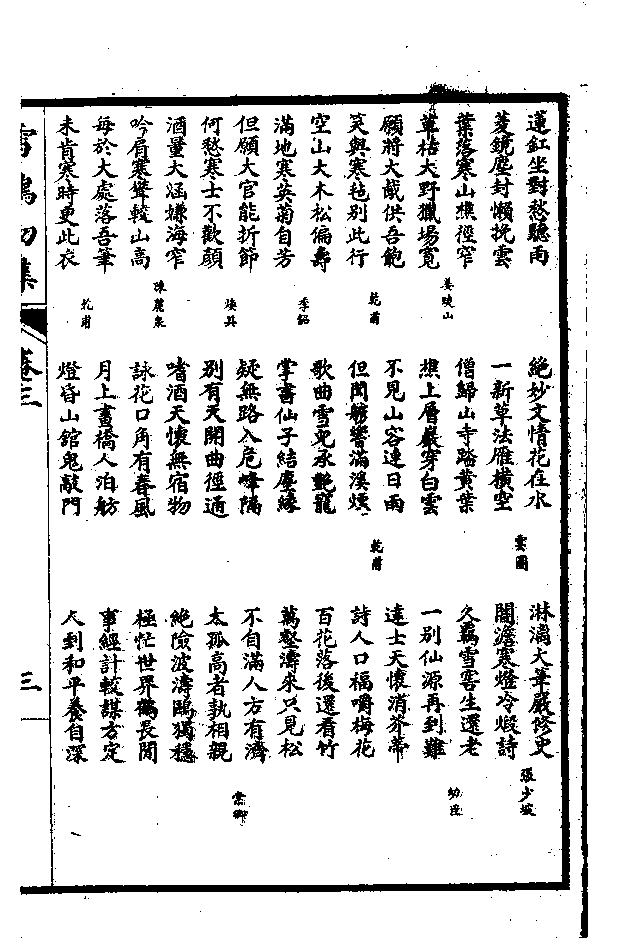 蓮釭坐對愁聽雨
菱鏡塵封懶挽雲
葉落寒山樵徑窄
草枯大野獵場寬
姜曉山
願將大胾供吾飽
笑與寒氈別此行
乾甫
空山大木松偏壽
滿地寒英菊自芳
季韶
但願大官能折節
何愁寒士不歡顏
煥其
酒量大涵嫌海窄
吟肩寒聳較山高
陳麓泉
每於大處落吾筆
未肯寒時更此衣
乾甫
絕妙文情花在水
一新草法雁橫空
雲圃
僧歸山寺踏黃葉
樵上層巖穿白雲
不見山容連日雨
但聞艣響滿溪煙
乾甫
歌曲雪兒承艷寵
掌書仙子結塵緣
疑無路入危峰隔
別有天開曲徑通
嗜酒天懷無宿物
詠花口角有春風
月上畫橋人泊舫
燈昏山館鬼敲門
淋漓大筆嚴修史
闇澹寒燈冷煅詩
張少坡
久羈雪窖生還老
一別仙源再到難
幼臣
達士天懷消芥蒂
詩人口福嚼梅花
百花落後還看竹
萬壑濤來只見松
不自滿人方有濟
太孤高者孰相親
棠卿
絕險波濤鷗獨穩
極忙世界鶴長閒
事經計較謀方定
人到和平養自深
雪鴻初集
卷三
三